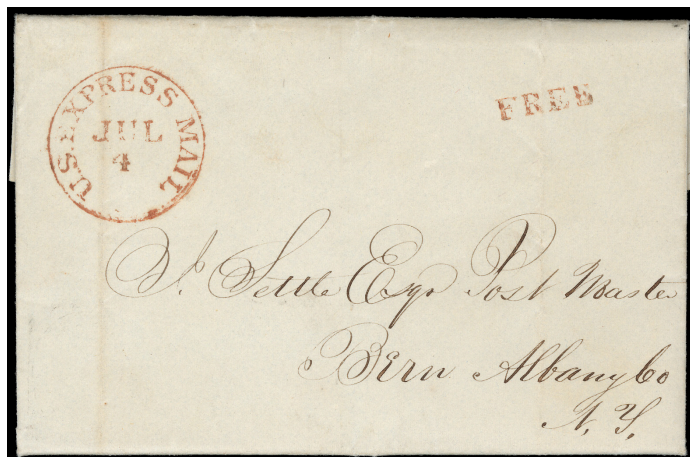 U.S. EXPRESS MAIL
JUL
4
FREE
J. Settle Esqr Post Master
Bern Albany Co
N. Y.